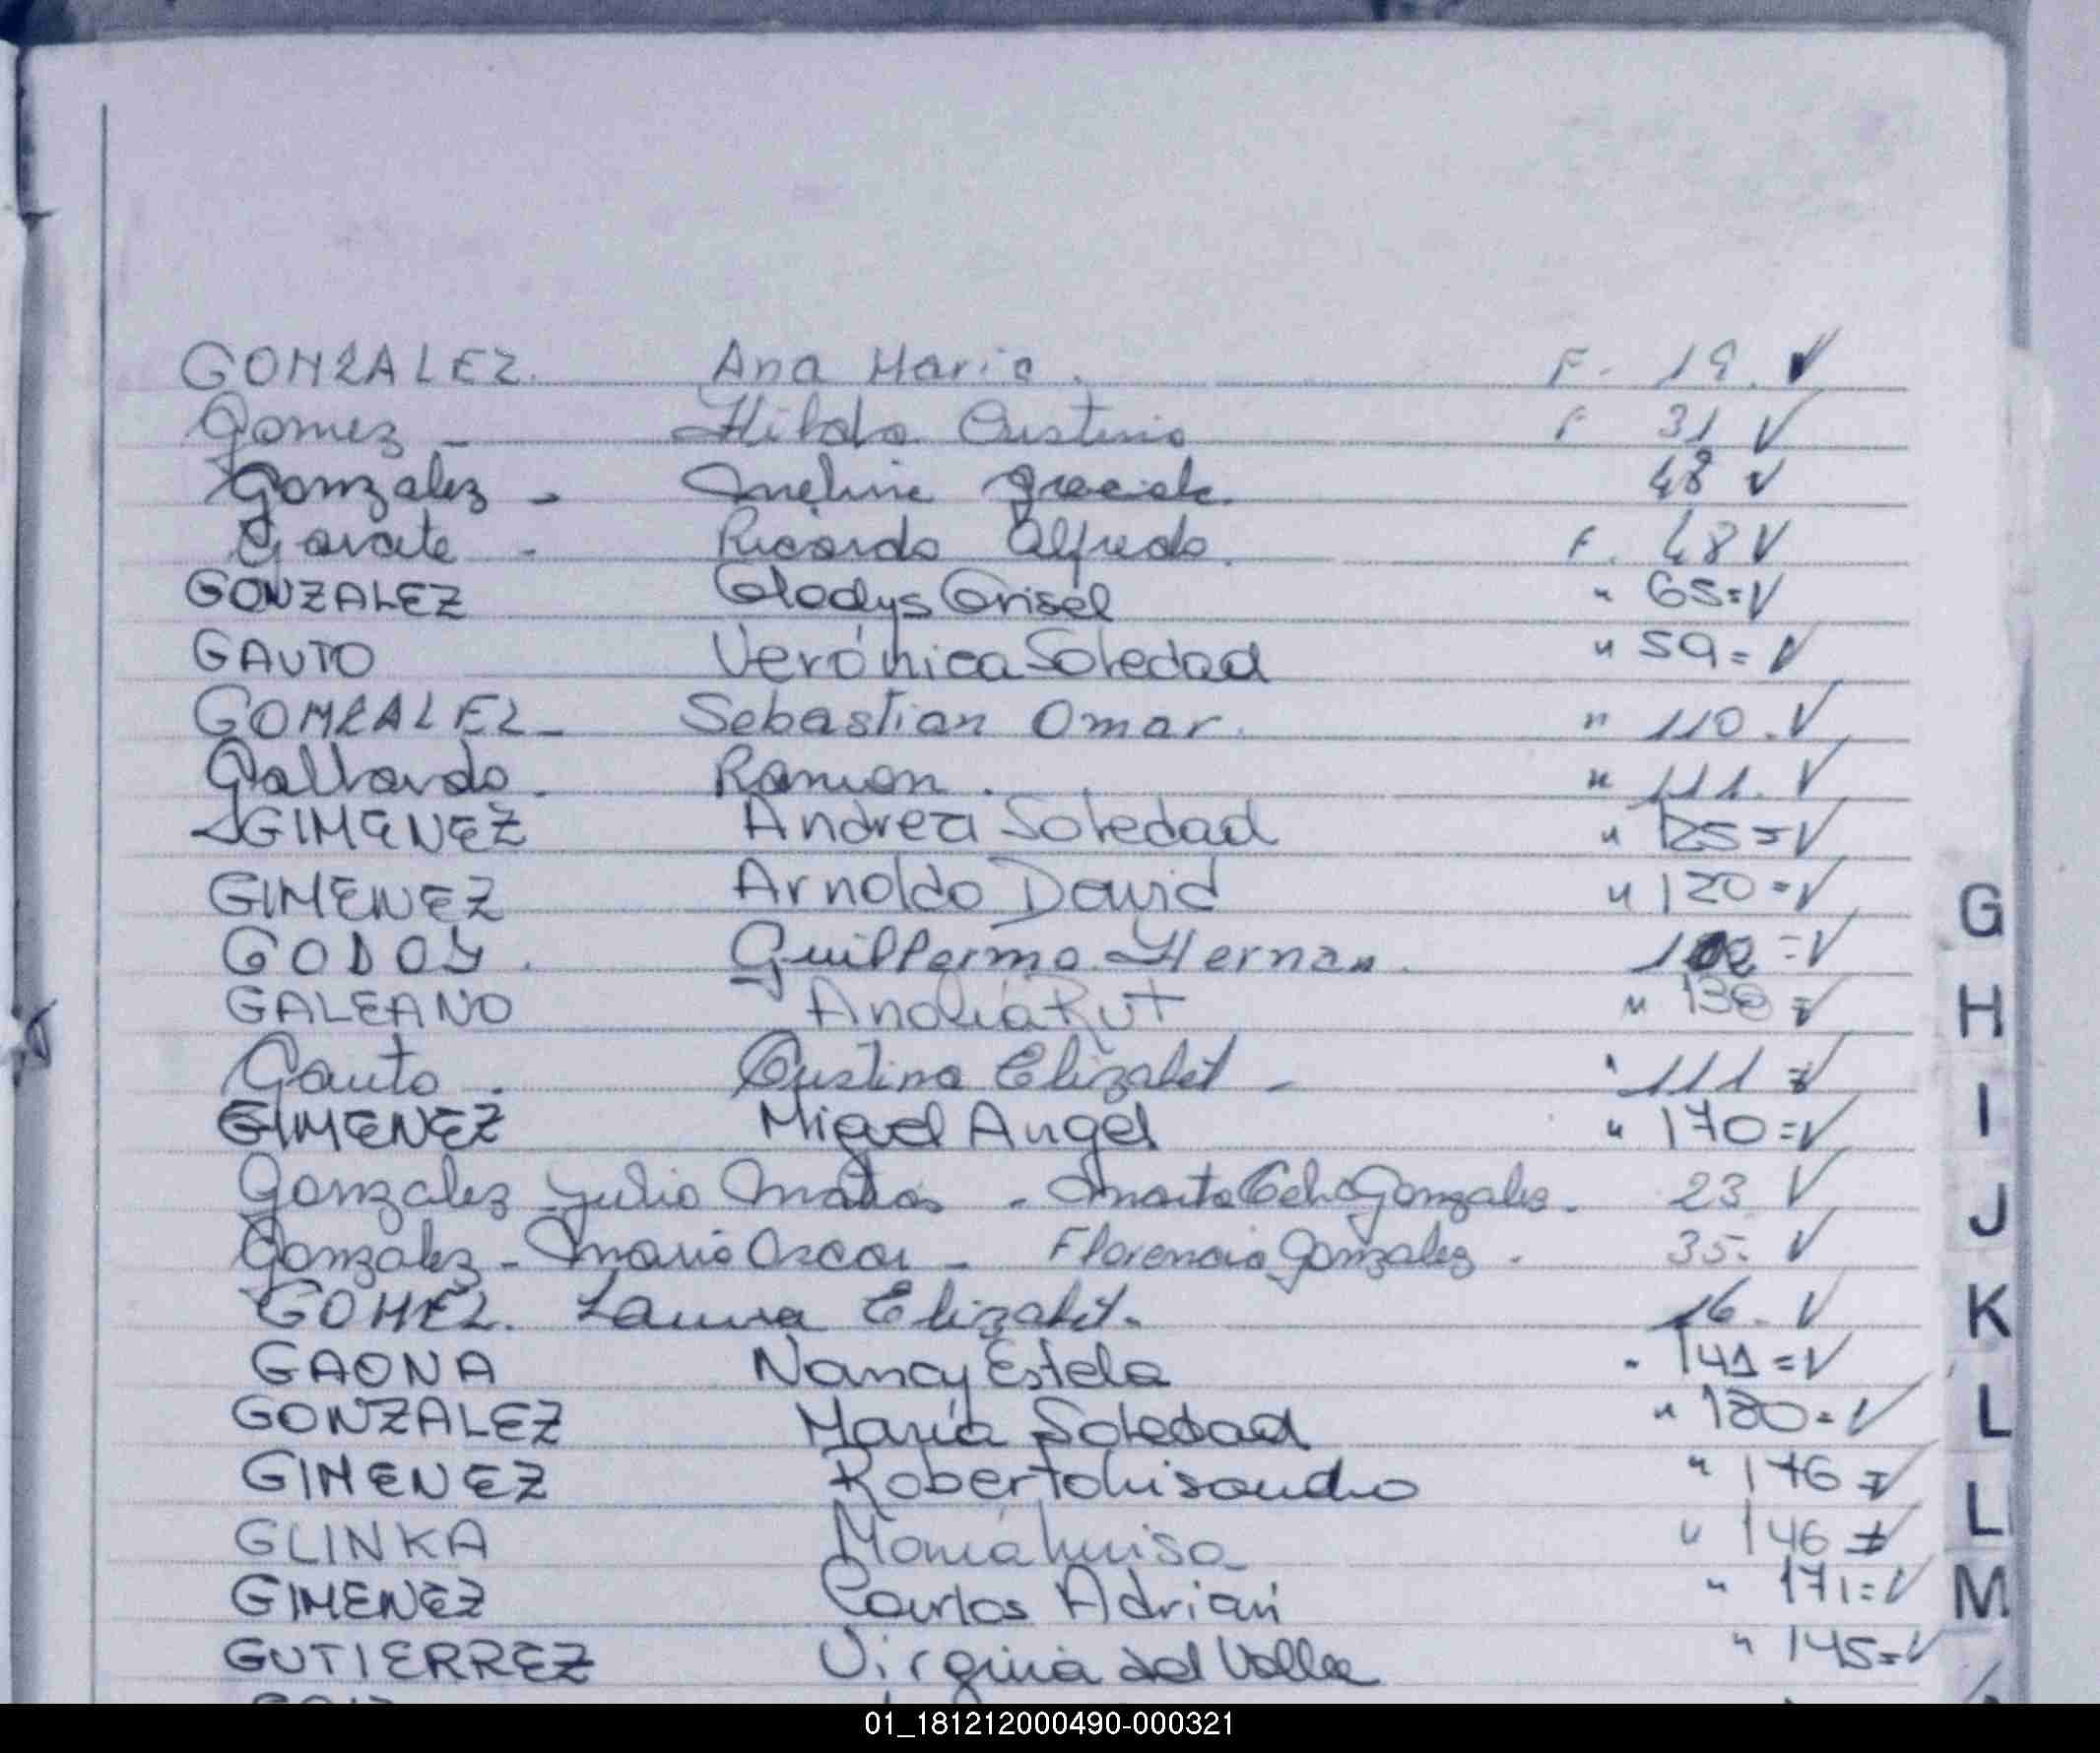 GONZALEZ. Ana Maria. F. 19. ✓
Gomez - Hilda Cristina F 31 ✓
Gonzalez - Graciela. 48 ✓
Garate - Ricardo Alfredo. F. 48 ✓
GONZALEZ Gladys Grisel " 65=✓
GAUTO Verónica Soledad " 59=✓
GONZALEZ - Sebastian Omar. " 110.✓
Gallardo. Ramon. " 111.✓
GIMENEZ Andrea Soledad " 125=✓
GIMENEZ Arnoldo David " 120=✓
GODOY. Guillermo Hernan. =✓
GALEANO Analía Rut " =✓
Gauto. Cristina Elizabet - " 111 =✓
GIMENEZ Miguel Angel " 170=✓
Gonzalez Julio Matias - Marta Celia Gonzalez. 23 ✓
Gonzalez - Mario Oscar - Florencia Gonzalez. 35. ✓
GOMEZ. Laura Elizabet. 16. ✓
GAONA Nancy Estela " 141=✓
GONZALEZ María Soledad " 180=✓
GIMENEZ Roberto Lisandro " 176=✓
GLINKA María Luisa " 146=✓
GIMENEZ Carlos Adrian " 171=✓
GUTIERREZ Virginia del Valle " 145=✓
G
H
I
J
K
L
L
M
01_181212000490-000321